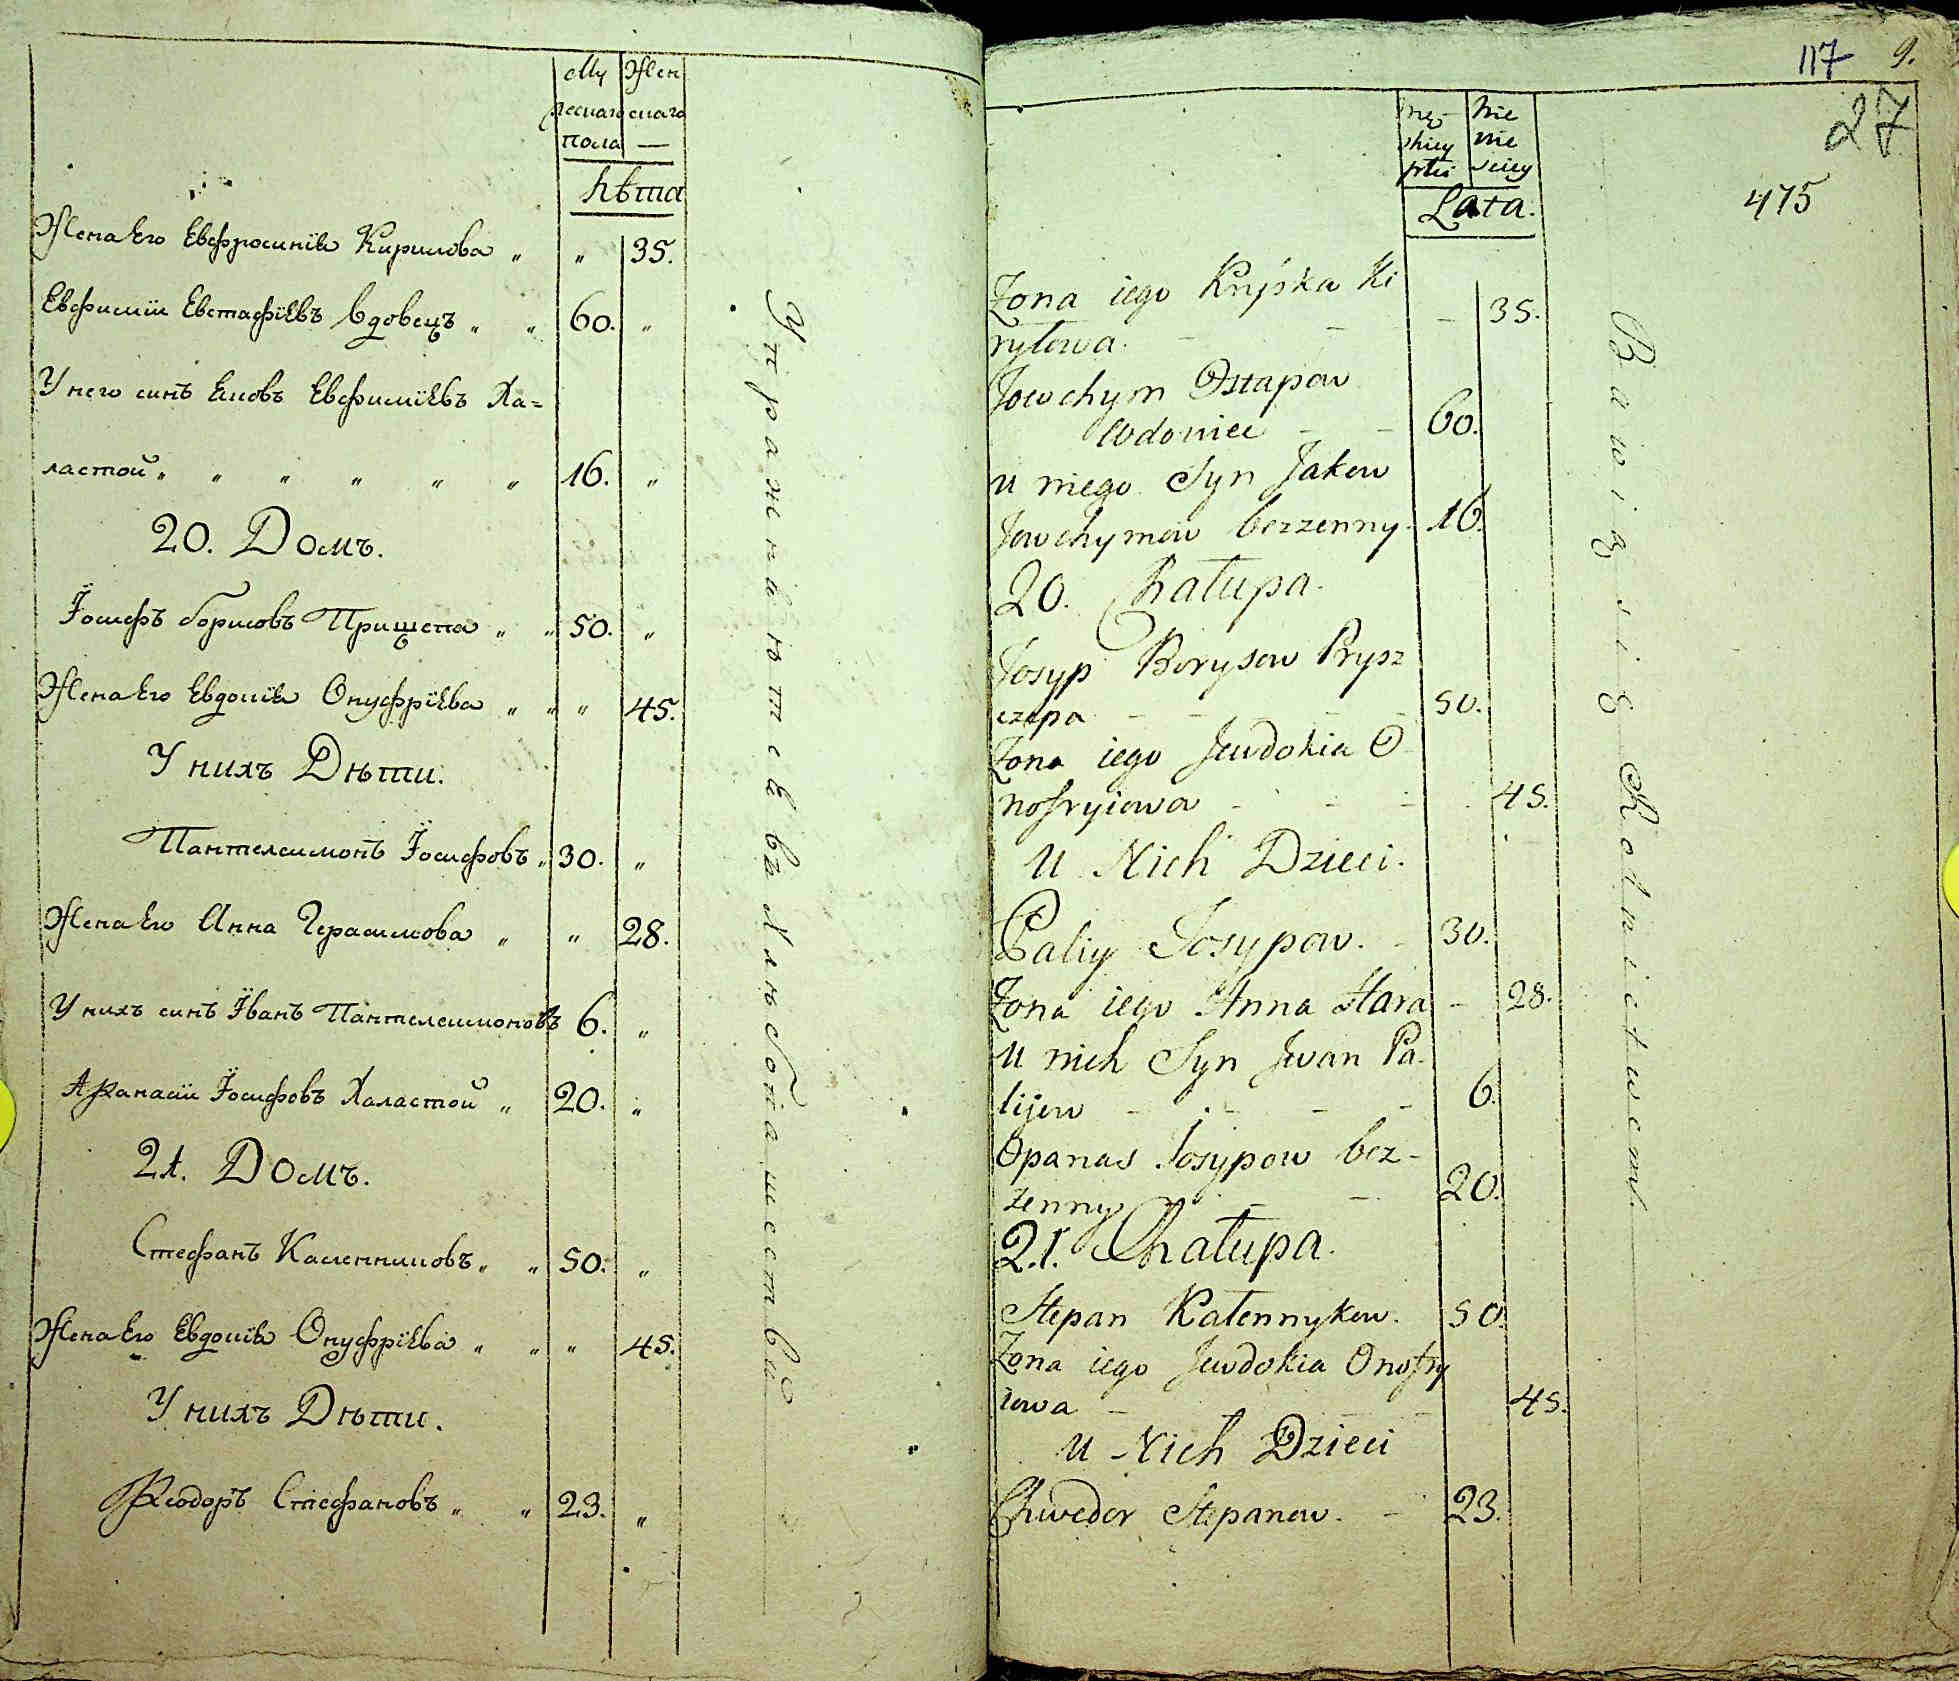 Му
Жен
жескаго
скаго
пола —
Лѣта
Жена Его Евфросинія Кирилова „ „ 35.
Евфимій Евстафіевъ вдовецъ „ „ 60. „
У него синъ Яковъ Евфиміевъ Ха=
ластой „ „ „ „ „ „ 16. „
20. Домъ.
Іосифъ Борисовъ Прищепа „ „ 50. „
Жена Его Евдокія Онуфріева „ „ „ 45.
У нихъ Дѣти.
Пантелеимонъ Іосифовъ „ 30. „
Жена Его Анна Герасимова „ „ 28.
У нихъ синъ Іванъ Пантелеимоновъ 6. „
Афанасій Іосифовъ Халастой „ 20. „
21. Домъ.
Стефанъ Каленниковъ „ „ 50. „
Жена Его Евдокія Онуфріева „ „ „ 45.
У нихъ Дѣти.
Феодоръ Стефановъ „ „ 23. „
Упражняются въ Хлѣбопашествѣ
117 9.
27
475
mę
skiey
płci
nie
wie
sciey
Lata.
Zona iego Kryśka Ki
ryłowa. – – – – 35.
Jowchym Ostapow
Wdowiec – – 60.
U niego Syn Jakow
Jowchymow bezzenny. 16.
20. Chałupa.
Josyp Borysow Prysz
czepa – – – – 50.
Zona iego Jewdokia O
nofryiowa – – – 45.
U Nich Dzieci.
Paliy Josypow. – 30.
Zona iego Anna Hara – 28.
U nich Syn Jwan Pa-
lijew – – – – 6.
Opanas Josypow bez-
zenny – – – 20.
21. Chałupa.
Stepan Kałennykow. 50.
Zona iego Jewdokia Onofry
iowa – – – – 45.
U Nich Dzieci
Chwedor Stepanow. – 23.
Bawią się Rolnictwem